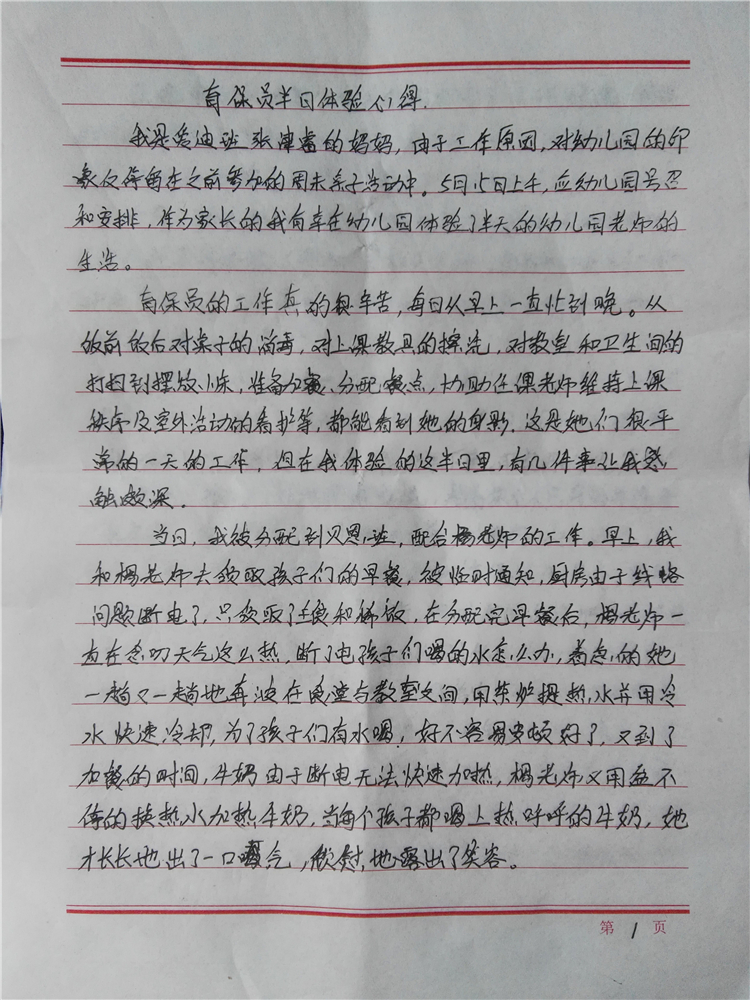 育保员半日体验心得.
我是爱迪班张津睿的妈妈，由于工作原因，对幼儿园的印
象仅停留在之前参加的周末亲子活动中。5月15日上午，应幼儿园号召
和安排，作为家长的我有幸在幼儿园体验了半天的幼儿园老师的
生活。
育保员的工作真的很辛苦，每日从早上一直忙到晚。从
饭前饭后对桌子的消毒，对上课教具的擦洗，对教室和卫生间的
打扫到摆放小床，准备加餐、分配餐点，协助任课老师维持上课
秩序及室外活动的看护等，都能看到她的身影.这是她们很平
常的一天的工作，但在我体验的这半日里，有几件事让我感
触颇深.
当日，我被分配到贝恩班，配合杨老师的工作。早上，我
和杨老师去领取孩子们的早餐，被临时通知，厨房由于线路
问题断电了，只领取了主食和稀饭，在分配完早餐后，杨老师一
直在念叨天气这么热，断了电孩子们喝的水怎么办，着急的她
一趟又一趟地奔波在食堂与教室之间，用茶炉提热水并用冷
水快速冷却，为了孩子们有水喝！好不容易安顿好了，又到了
加餐的时间，牛奶由于断电无法快速加热，杨老师又用盆不
停的换热水加热牛奶，当每个孩子都喝上热呼呼的牛奶，她
才长长地出了一口气，欣慰地露出了笑容。
第 1 页